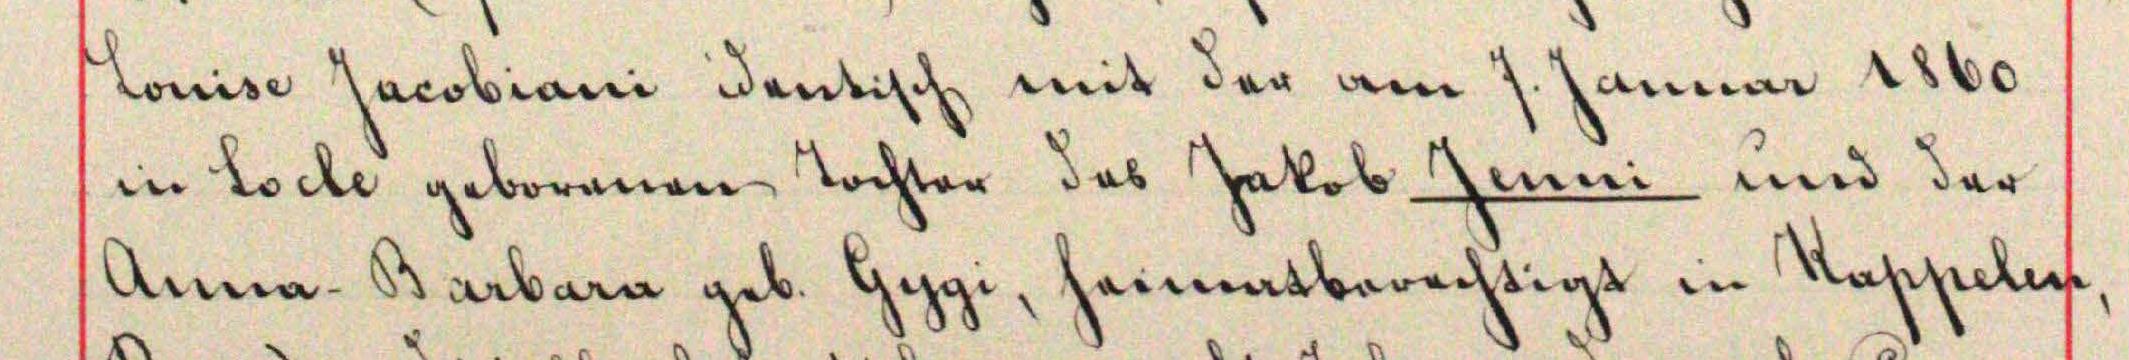 Louise Jacobiani identisch mit der am 7. Januar 1860
in Locle geborenen Tochter des Jakob Jenni und der
Anna-Barbara geb. Gygi, heimatberechtigt in Kappelen,